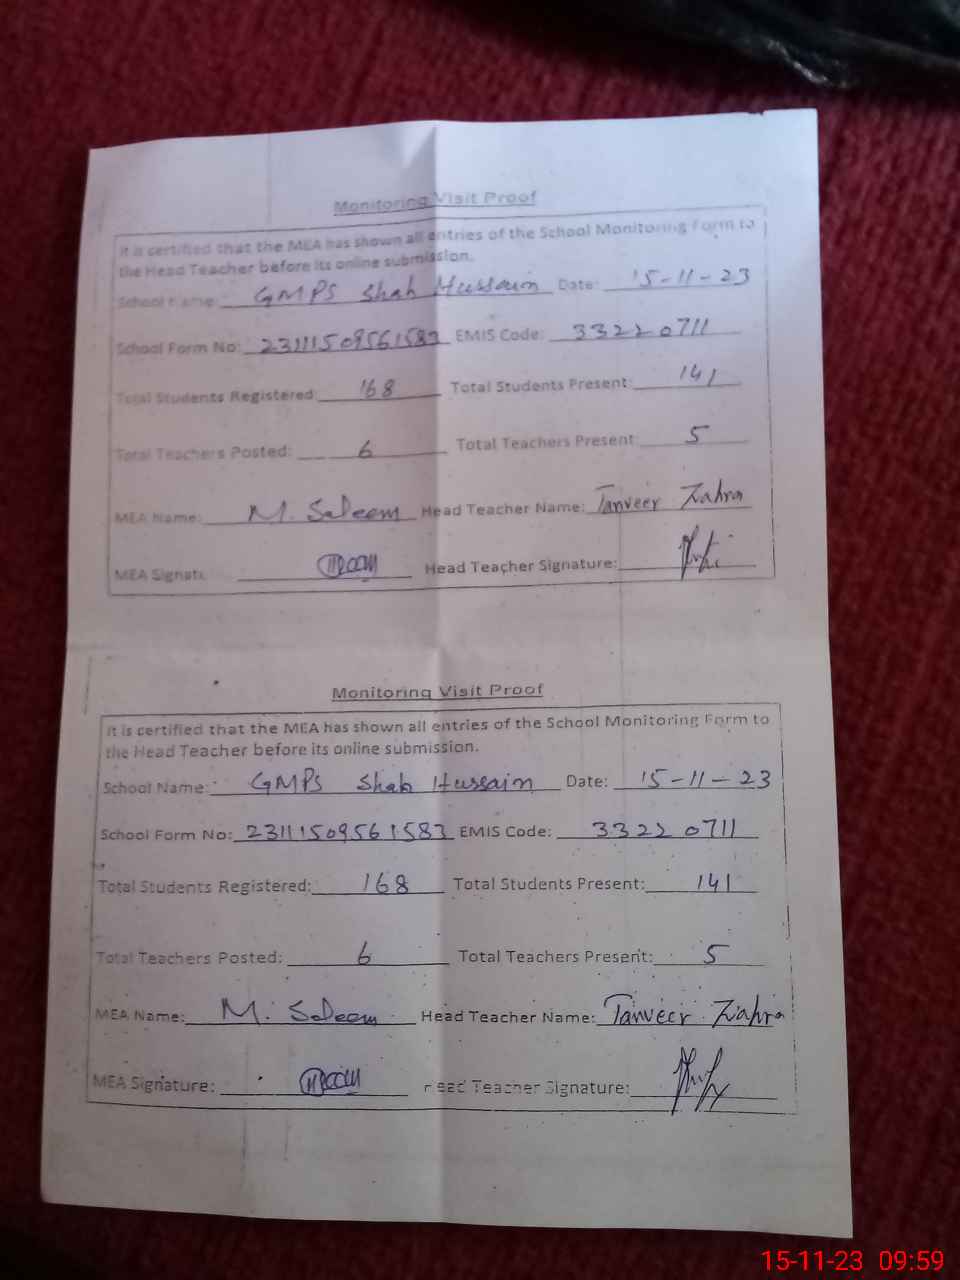 Monitoring Visit Proof
It is certified that the MEA has shown all entries of the School Monitoring Form to
the Head Teacher before its online submission.
School Name: GMPS Shah Hussain Date: 15-11-23
School Form No: 23111509561583 EMIS Code: 33220711
Total Students Registered: 168 Total Students Present: 141
Total Teachers Posted: 6 Total Teachers Present: 5
MEA Name: M. Saleem Head Teacher Name: Tanveer Zahra
MEA Signatu Head Teacher Signature:
Monitoring Visit Proof
It is certified that the MEA has shown all entries of the School Monitoring Form to
the Head Teacher before its online submission.
School Name: GMPS Shah Hussain Date: 15-11-23
School Form No: 23111509561583 EMIS Code: 33220711
Total Students Registered: 168 Total Students Present: 141
Total Teachers Posted: 6 Total Teachers Present: 5
MEA Name: M. Saleem Head Teacher Name: Tanveer Zahra
MEA Signature: Head Teacher Signature:
15-11-23 09:59